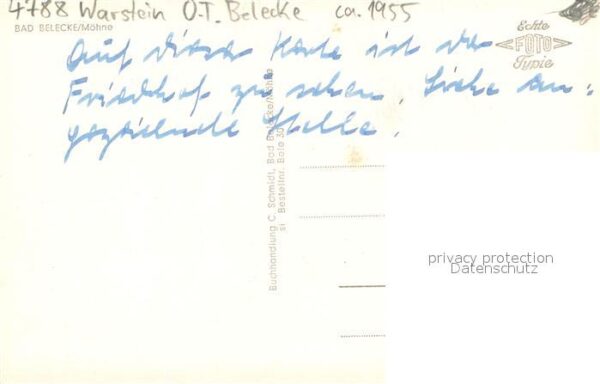 4788 Warstein O.T. Belecke ca. 1955
BAD BELECKE/Möhne
Echte
FOTO
Typie
Auf dieser Karte ist der
Friedhof zu sehen. Siehe an-
gezeichnete Stelle.
Buchhandlung C. Schmidt, Bad Belecke/Möhne
si Bestellnr. Bele 30
privacy protection
Datenschutz